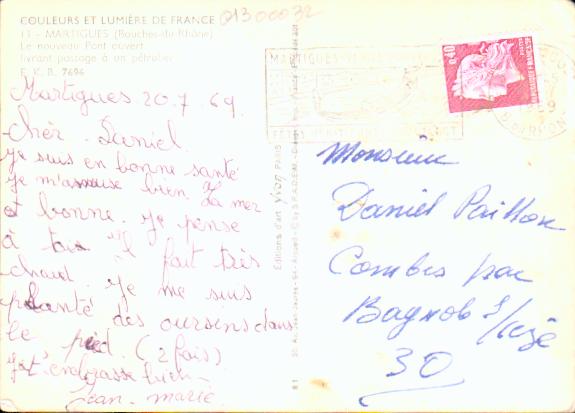 COULEURS ET LUMIÈRE DE FRANCE
01300032
11 - MARTIGUES (Bouches-du-Rhône)
Le nouveau Pont ouvert
livrant passage à un pétrolier
E. K. B. 7694
Martigues 20.7.69
Chér Daniel.
je suis en bonne santé
je m'amuse bien. La mer
et bonne. je pense
à toi il fait très
chaud. je me suis
planté des oursins dans
le pied. (2 fois)
je t'embrasse bien
Jean-marie
Editions d'art yvon PARIS
MARTIGUES
0,40
Monsieur
Daniel
Combes par
Bagnols s/cèze
30